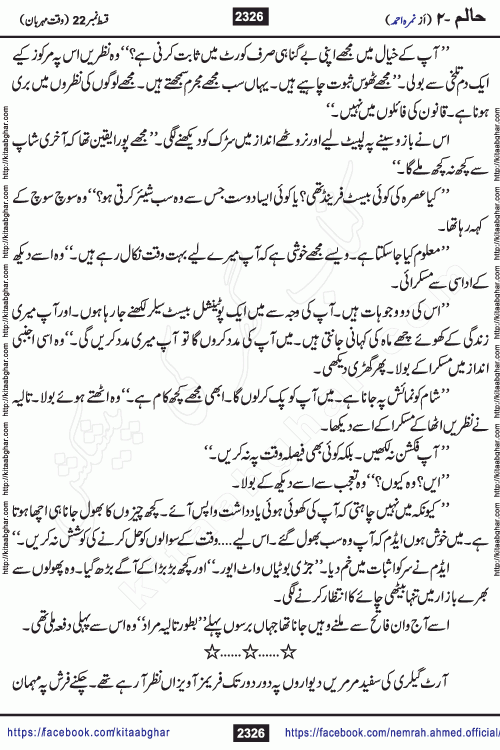 حالم -۲ (از نمرہ احمد) 2326 قسط نمبر 22 (وقت مہربان)
’’آپ کے خیال میں مجھے اپنی بے گناہی صرف کورٹ میں ثابت کرنی ہے؟‘‘ وہ نظریں اس پہ مرکوز کیے
ایک دم تلخی سے بولی۔ ’’مجھے ٹھوس ثبوت چاہیے ہیں۔ یہاں سب مجھے مجرم سمجھتے ہیں۔ مجھے لوگوں کی نظروں میں بری
ہونا ہے۔ قانون کی فائلوں میں نہیں۔‘‘
اس نے بازو سینے پہ لپیٹ لیے اور نروٹھے انداز میں سڑک کو دیکھنے لگی۔ ’’مجھے پورا یقین تھا کہ آخری شاپ
سے کچھ نہ کچھ ملے گا۔‘‘
’’کیا عصرہ کی کوئی بیسٹ فرینڈ تھی؟ یا کوئی ایسا دوست جس سے وہ سب شیئر کرتی ہو؟‘‘ وہ سوچ سوچ کے
کہہ رہا تھا۔
’’معلوم کیا جا سکتا ہے۔ ویسے مجھے خوشی ہے کہ آپ میرے لیے بہت وقت نکال رہے ہیں۔‘‘ وہ اسے دیکھ
کے اداسی سے مسکرائی۔
’’اس کی دو وجوہات ہیں۔ آپ کی وجہ سے میں ایک پوٹینشل بیسٹ سیلر لکھنے جا رہا ہوں۔ اور آپ میری
زندگی کے کھوئے چھے ماہ کی کہانی جانتی ہیں۔ میں آپ کی مدد کروں گا تو آپ میری مدد کریں گی۔‘‘ وہ اسی اجنبی
انداز میں مسکرا کے بولا۔ پھر گھڑی دیکھی۔
’’شام کو نمائش پہ جانا ہے۔ میں آپ کو پک کر لوں گا۔ ابھی مجھے کچھ کام ہے۔‘‘ وہ اٹھتے ہوئے بولا۔ تالیہ
نے نظریں اٹھا کے مسکرا کے اسے دیکھا۔
’’آپ فکشن نہ لکھیں۔ بلکہ کوئی بھی فیصلہ وقت پہ نہ کریں۔‘‘
’’ایں؟ وہ کیوں؟‘‘ وہ تعجب سے اسے دیکھ کے بولا۔
’’کیونکہ میں نہیں چاہتی کہ آپ کی کھوئی ہوئی یادداشت واپس آئے۔ کچھ چیزوں کا بھول جانا ہی اچھا ہوتا
ہے۔ میں خوش ہوں ایڈم کہ آپ وہ سب بھول گئے۔ اس لیے.... وقت کے سوالوں کو حل کرنے کی کوشش نہ کریں۔‘‘
ایڈم نے سر کو اثبات میں خم دیا۔ ’’جڑی بوٹیاں واٹ ایور۔‘‘ اور کچھ بڑبڑا کے آگے بڑھ گیا۔ وہ پھولوں سے
بھرے بازار میں تنہا بیٹھی چائے کا انتظار کرنے لگی۔
اسے آج وان فاتح سے ملنے وہیں جانا تھا جہاں برسوں پہلے ’’بطور تالیہ مراد‘‘ وہ اس سے پہلی دفعہ ملی تھی۔
☆......☆......☆
آرٹ گیلری کی سفید مرمریں دیواروں پہ دور دور تک فریمز آویزاں نظر آ رہے تھے۔ چکنے فرش پہ مہمان
https://facebook.com/kitaabghar 2326 https://facebook.com/nemrah.ahmed.official/
http://kitaabghar.com http://kitaabghar.com http://kitaabghar.com http://kitaabghar.com http://kitaabghar.com